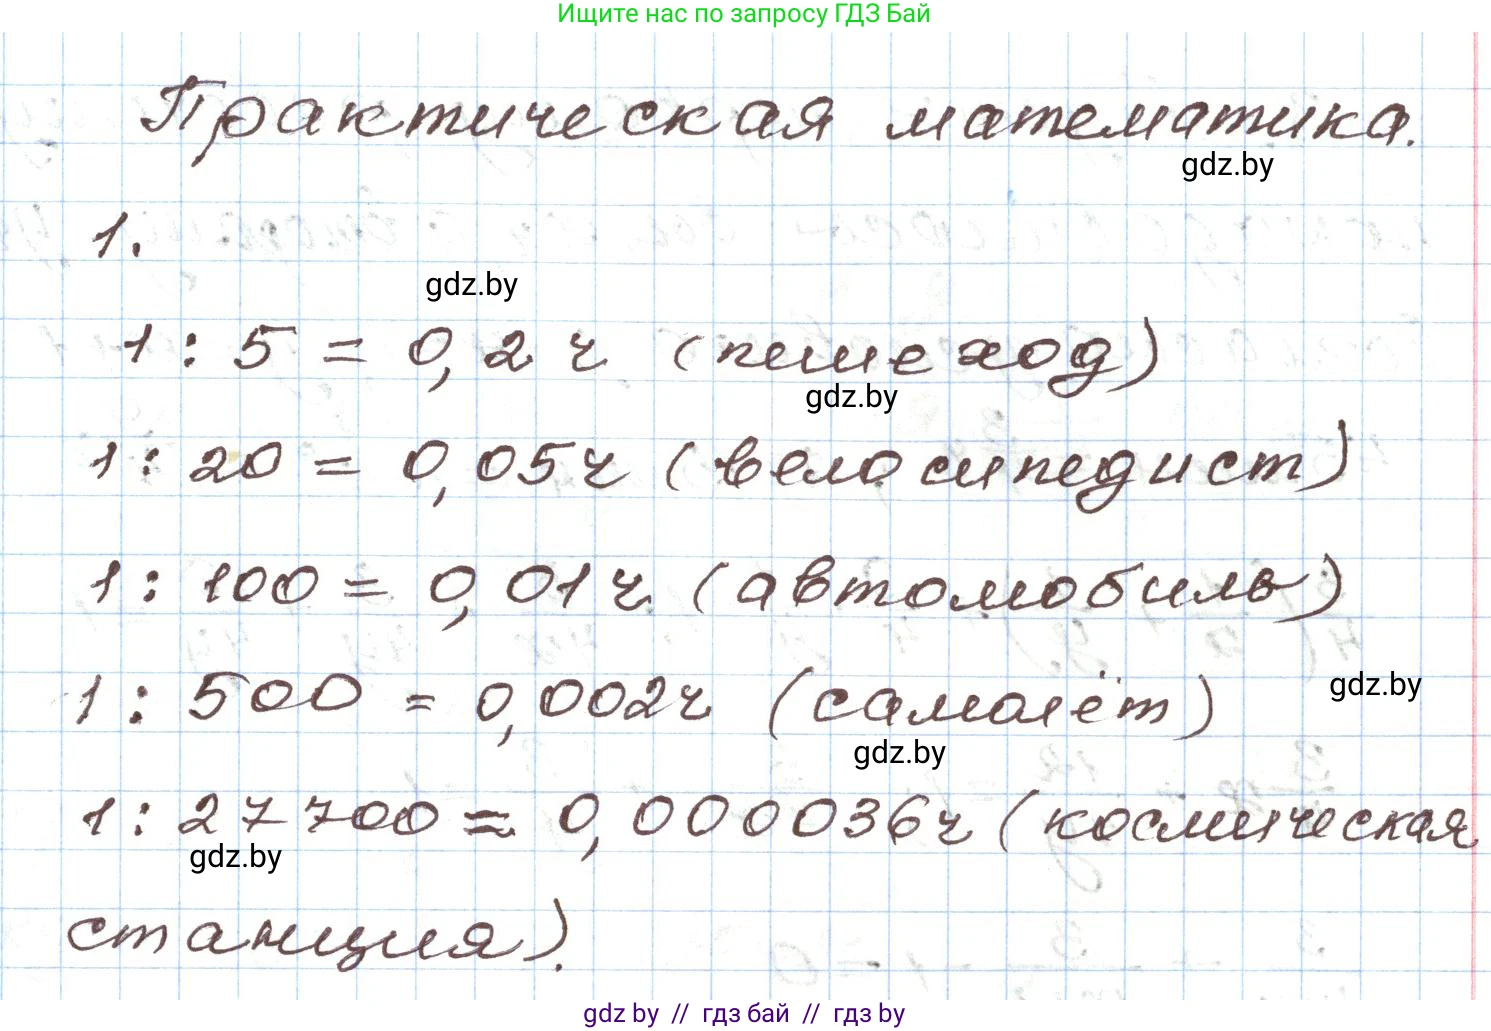 Ищите нас по запросу ГДЗ Бай
Практическая математика.
gdz.by
1.
gdz.by
1 : 5 = 0,2 ч (пешеход)
gdz.by
1 : 20 = 0,05 ч (велосипедист)
1 : 100 = 0,01 ч (автомобиль)
1 : 500 = 0,002 ч (самолёт)
gdz.by
gdz.by
1 : 27700 ≈ 0,000036 ч (космическая
gdz.by
станция).
gdz.by // гдз бай // гдз by